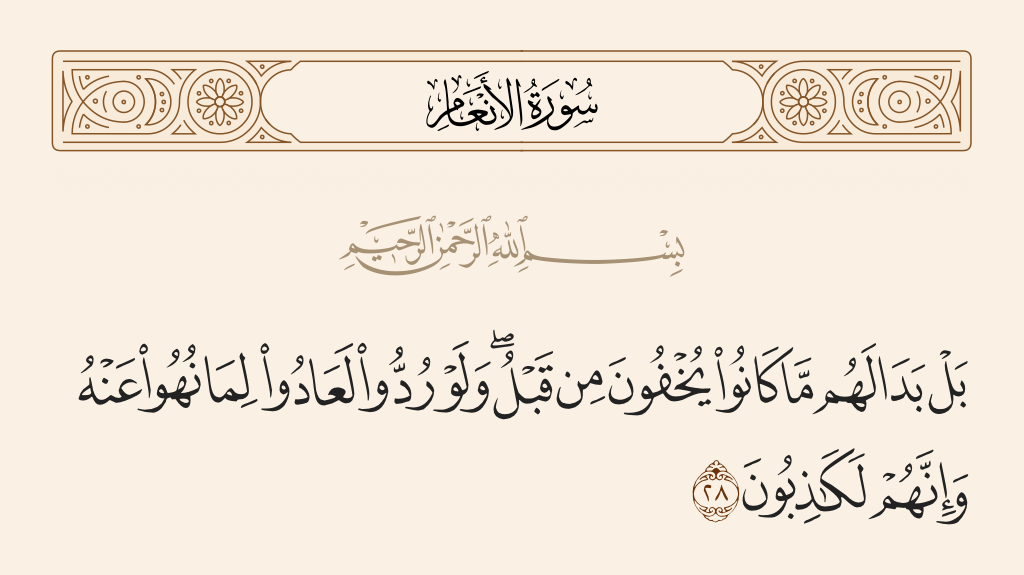 سُورَةُ الأَنْعَامِ
بِسْمِ ٱللَّهِ ٱلرَّحْمَٰنِ ٱلرَّحِيمِ
بَلْ بَدَا لَهُم مَّا كَانُوا۟ يُخْفُونَ مِن قَبْلُ ۖ وَلَوْ رُدُّوا۟ لَعَادُوا۟ لِمَا نُهُوا۟ عَنْهُ
وَإِنَّهُمْ لَكَـٰذِبُونَ ٢٨